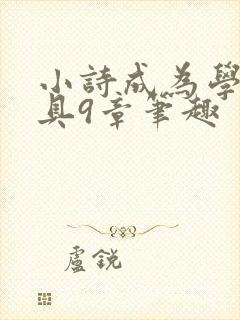 小詩成為學
具9章筆趣
盧銳